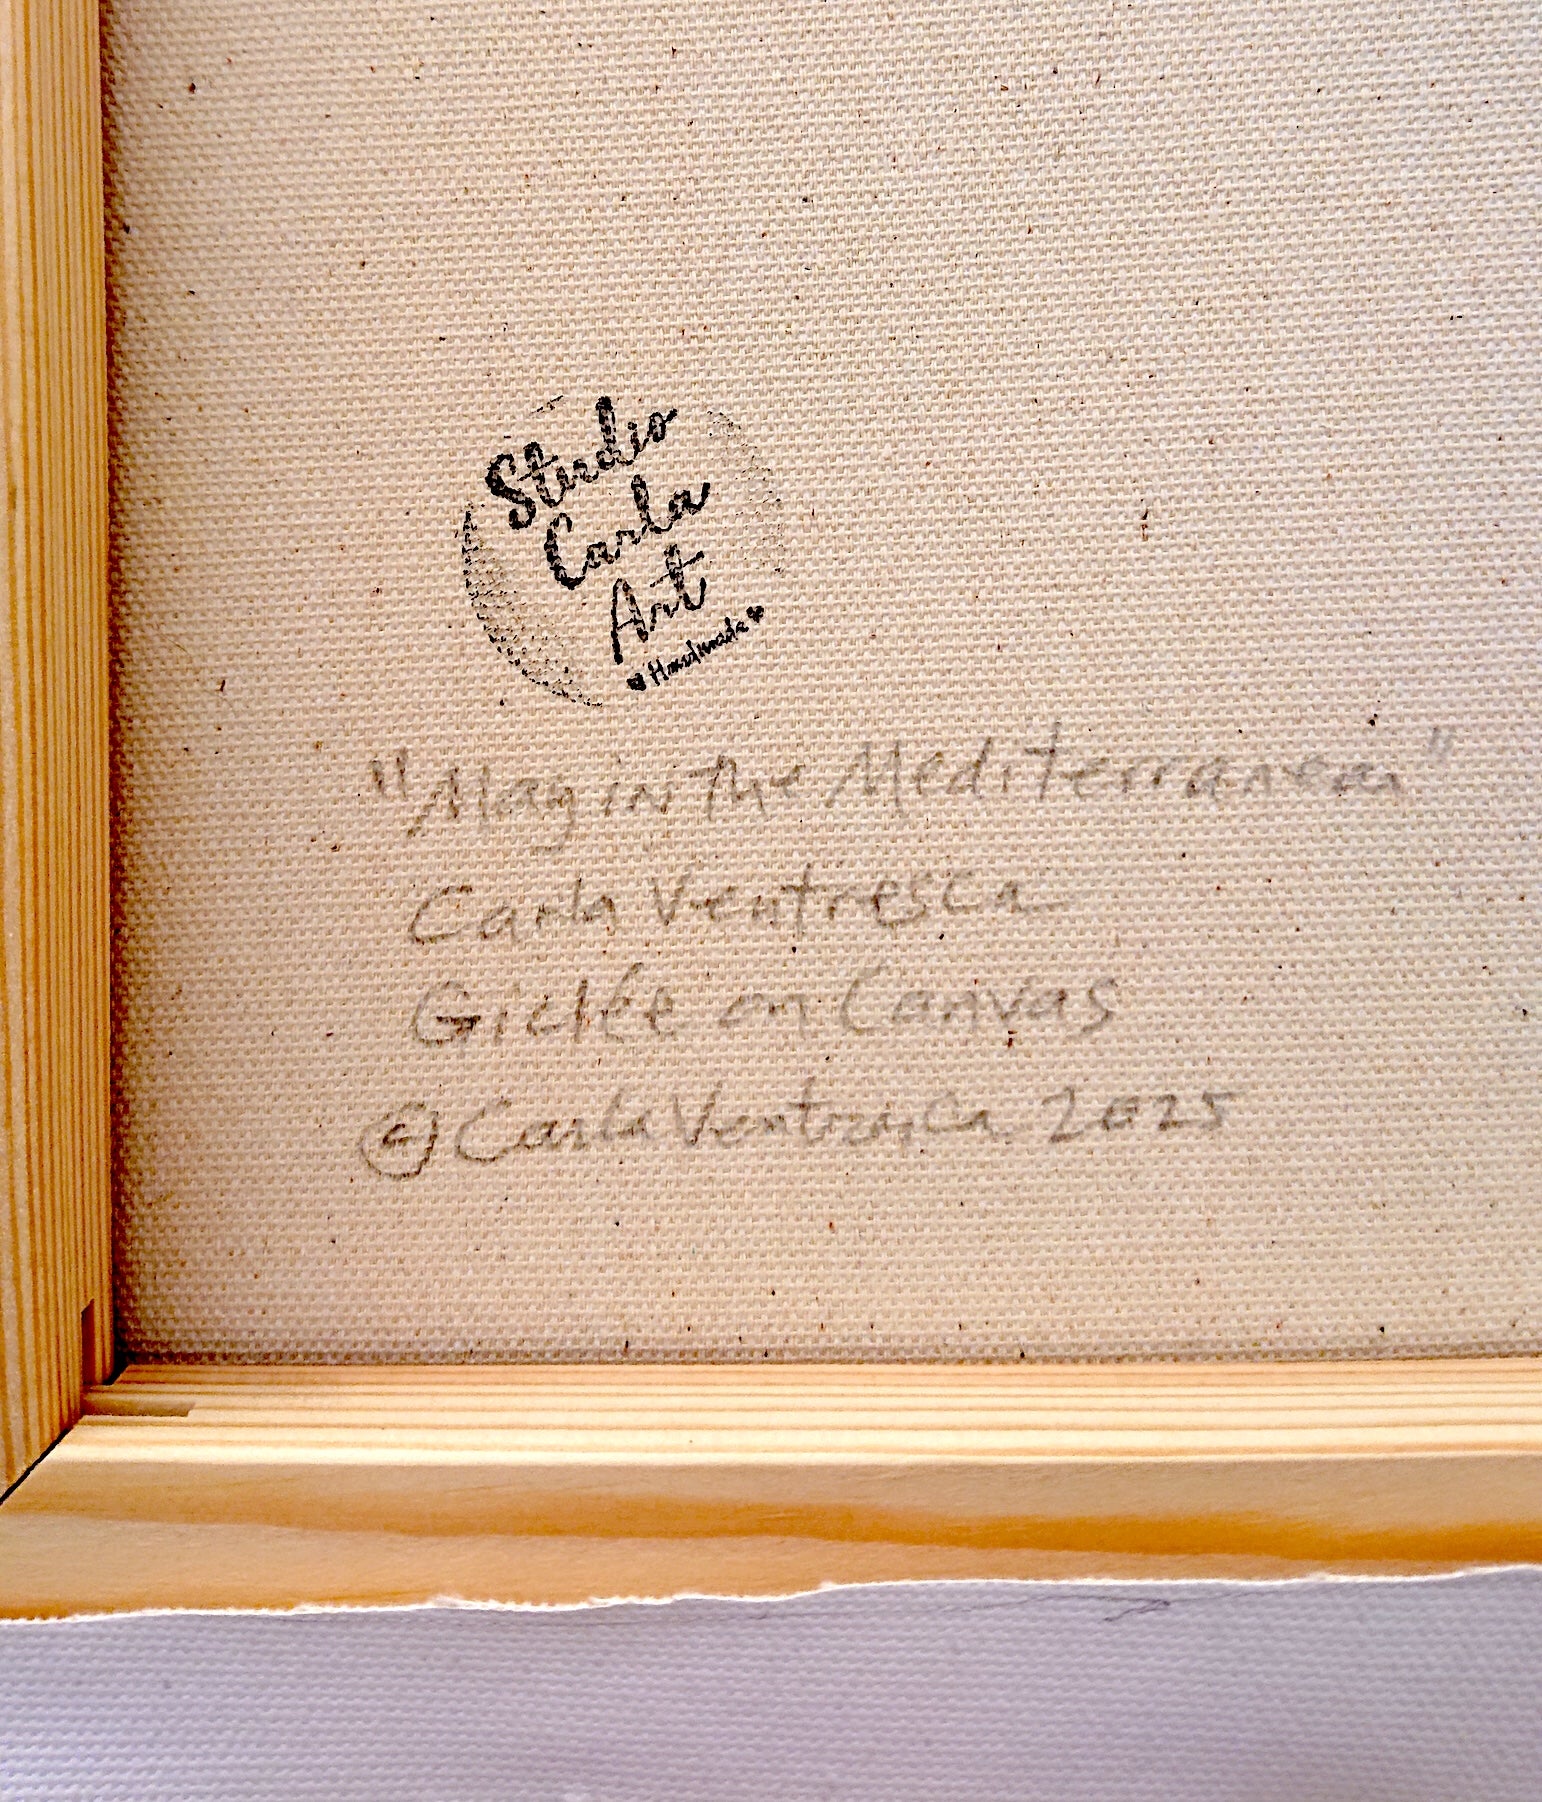 Studio
Carla
Art
♥ Handmade ♥
"May in the Mediterranean"
Carla Ventresca
Giclée on Canvas
© Carla Ventresca 2025